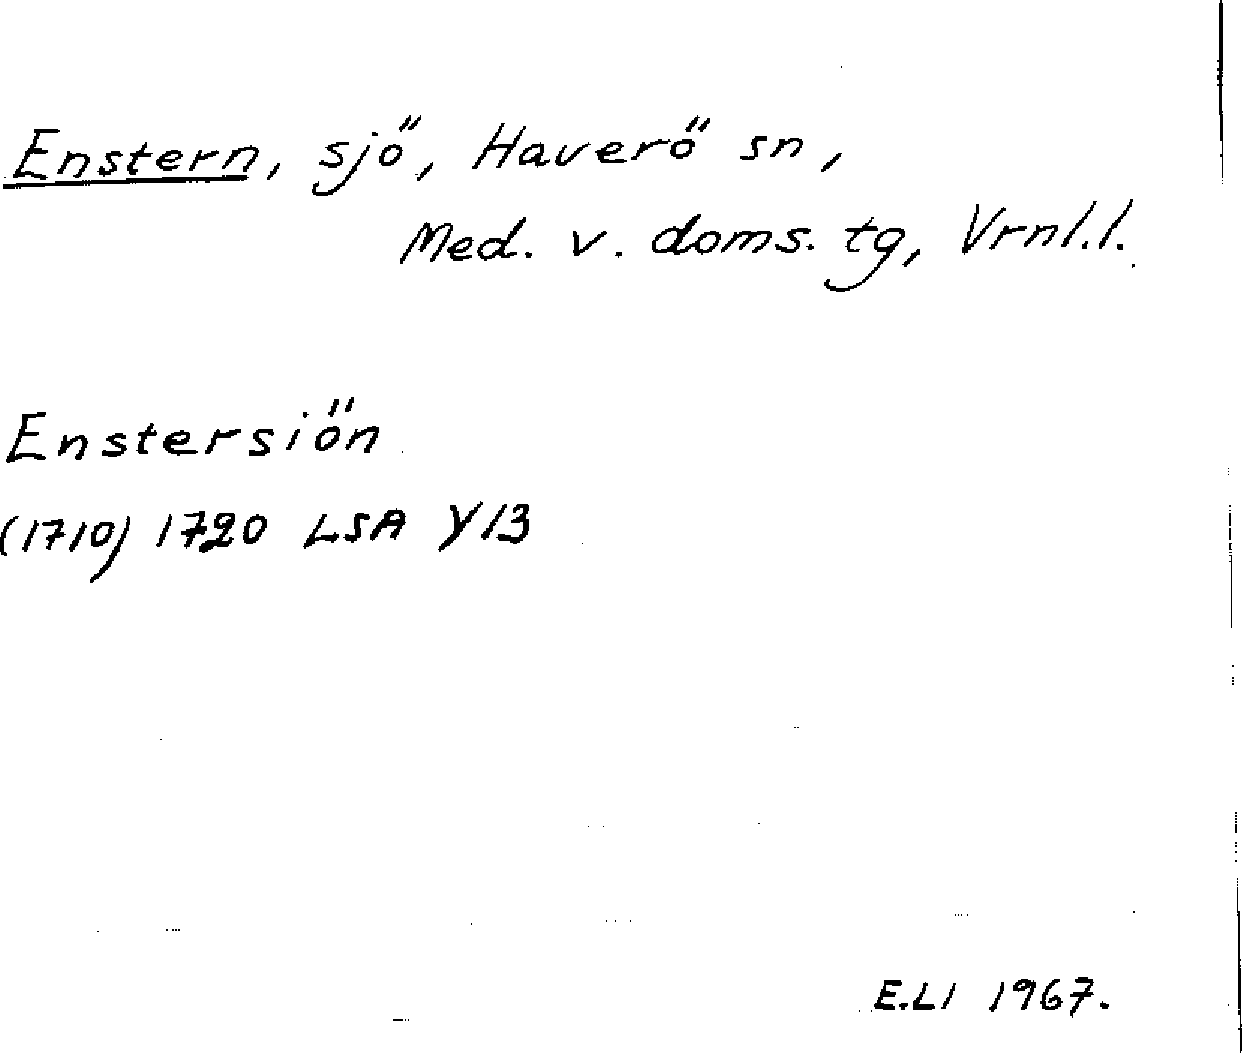 Enstern, sjö, Haverö sn,
Med. v. doms. tg, Vrnl.l.
Enstersiön
(1710) 1720 LSA Y13
E.LI 1967.